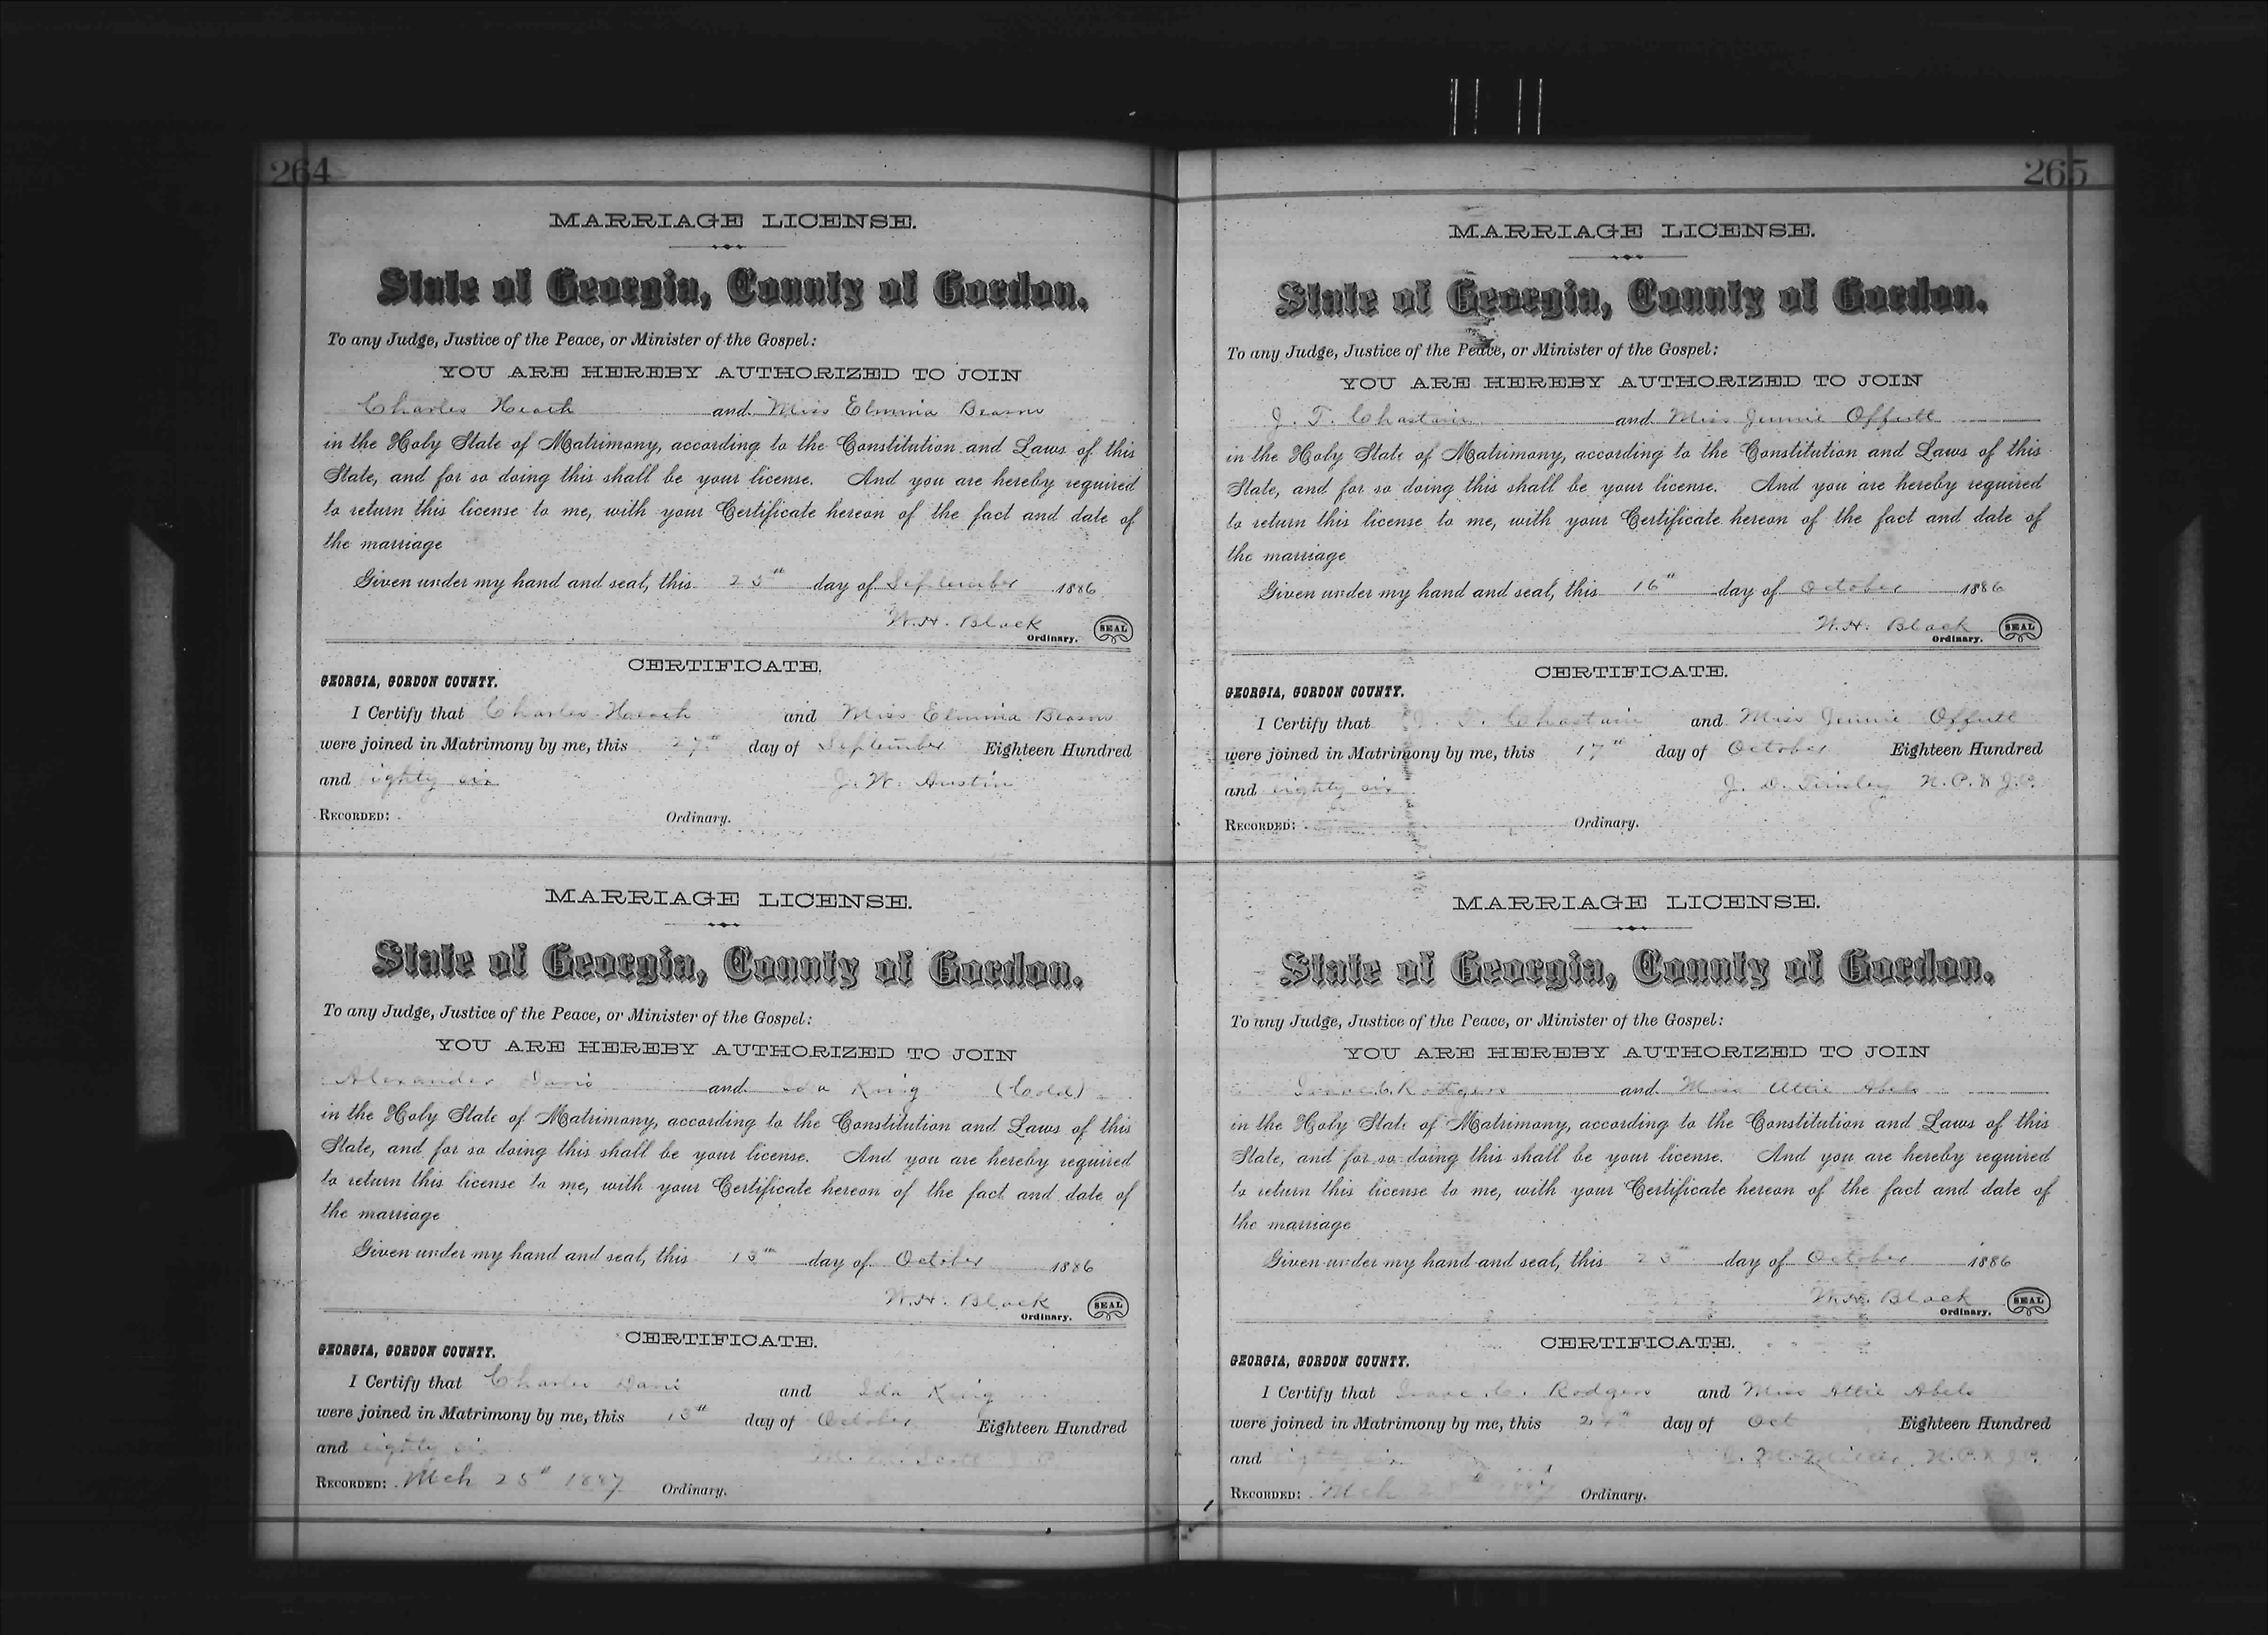 264
MARRIAGE LICENSE.
State of Georgia, County of Gordon.
To any Judge, Justice of the Peace, or Minister of the Gospel:
YOU ARE HEREBY AUTHORIZED TO JOIN
Charles Heath and Miss Elmina
in the Holy State of Matrimony, according to the Constitution and Laws of this
State, and for so doing this shall be your license. And you are hereby required
to return this license to me, with your Certificate hereon of the fact and date of
the marriage
Given under my hand and seal, this 25th day of September 1886
W. H. Black
Ordinary. SEAL
CERTIFICATE.
GEORGIA, GORDON COUNTY.
I Certify that Charles and Miss Elmina
were joined in Matrimony by me, this 27th day of September Eighteen Hundred
and eighty six J. W. Austin
RECORDED: Ordinary.
MARRIAGE LICENSE.
State of Georgia, County of Gordon.
To any Judge, Justice of the Peace, or Minister of the Gospel:
YOU ARE HEREBY AUTHORIZED TO JOIN
Alexander Davis and Ida King (Cold)
in the Holy State of Matrimony, according to the Constitution and Laws of this
State, and for so doing this shall be your license. And you are hereby required
to return this license to me, with your Certificate hereon of the fact and date of
the marriage
Given under my hand and seal, this 13th day of October 1886
W. H. Black
Ordinary. SEAL
CERTIFICATE.
GEORGIA, GORDON COUNTY.
I Certify that Charles Davis and Ida King
were joined in Matrimony by me, this 13th day of October Eighteen Hundred
and eighty six M. M. Scott J. P.
RECORDED: Mch 25th 1887 Ordinary.
265
MARRIAGE LICENSE.
State of Georgia, County of Gordon.
To any Judge, Justice of the Peace, or Minister of the Gospel:
YOU ARE HEREBY AUTHORIZED TO JOIN
J. T. Chastain and Miss Jennie Offutt
in the Holy State of Matrimony, according to the Constitution and Laws of this
State, and for so doing this shall be your license. And you are hereby required
to return this license to me, with your Certificate hereon of the fact and date of
the marriage
Given under my hand and seal, this 16th day of October 1886
W. H. Black
Ordinary. SEAL
CERTIFICATE.
GEORGIA, GORDON COUNTY.
I Certify that J. T. Chastain and Miss Jennie Offutt
were joined in Matrimony by me, this 17th day of October Eighteen Hundred
and eighty six J. D. Tinsley N. P. & J. P.
RECORDED: Ordinary.
MARRIAGE LICENSE.
State of Georgia, County of Gordon.
To any Judge, Justice of the Peace, or Minister of the Gospel:
YOU ARE HEREBY AUTHORIZED TO JOIN
Isaac C. Rodgers and Miss Attie Abels
in the Holy State of Matrimony, according to the Constitution and Laws of this
State, and for so doing this shall be your license. And you are hereby required
to return this license to me, with your Certificate hereon of the fact and date of
the marriage
Given under my hand and seal, this 23th day of October 1886
W. H. Black
Ordinary. SEAL
CERTIFICATE.
GEORGIA, GORDON COUNTY.
I Certify that Isaac C. Rodgers and Miss Attie Abels
were joined in Matrimony by me, this 24th day of Oct Eighteen Hundred
and eighty six Miller N. P. & J. P.
RECORDED: Mch 25th 1887 Ordinary.